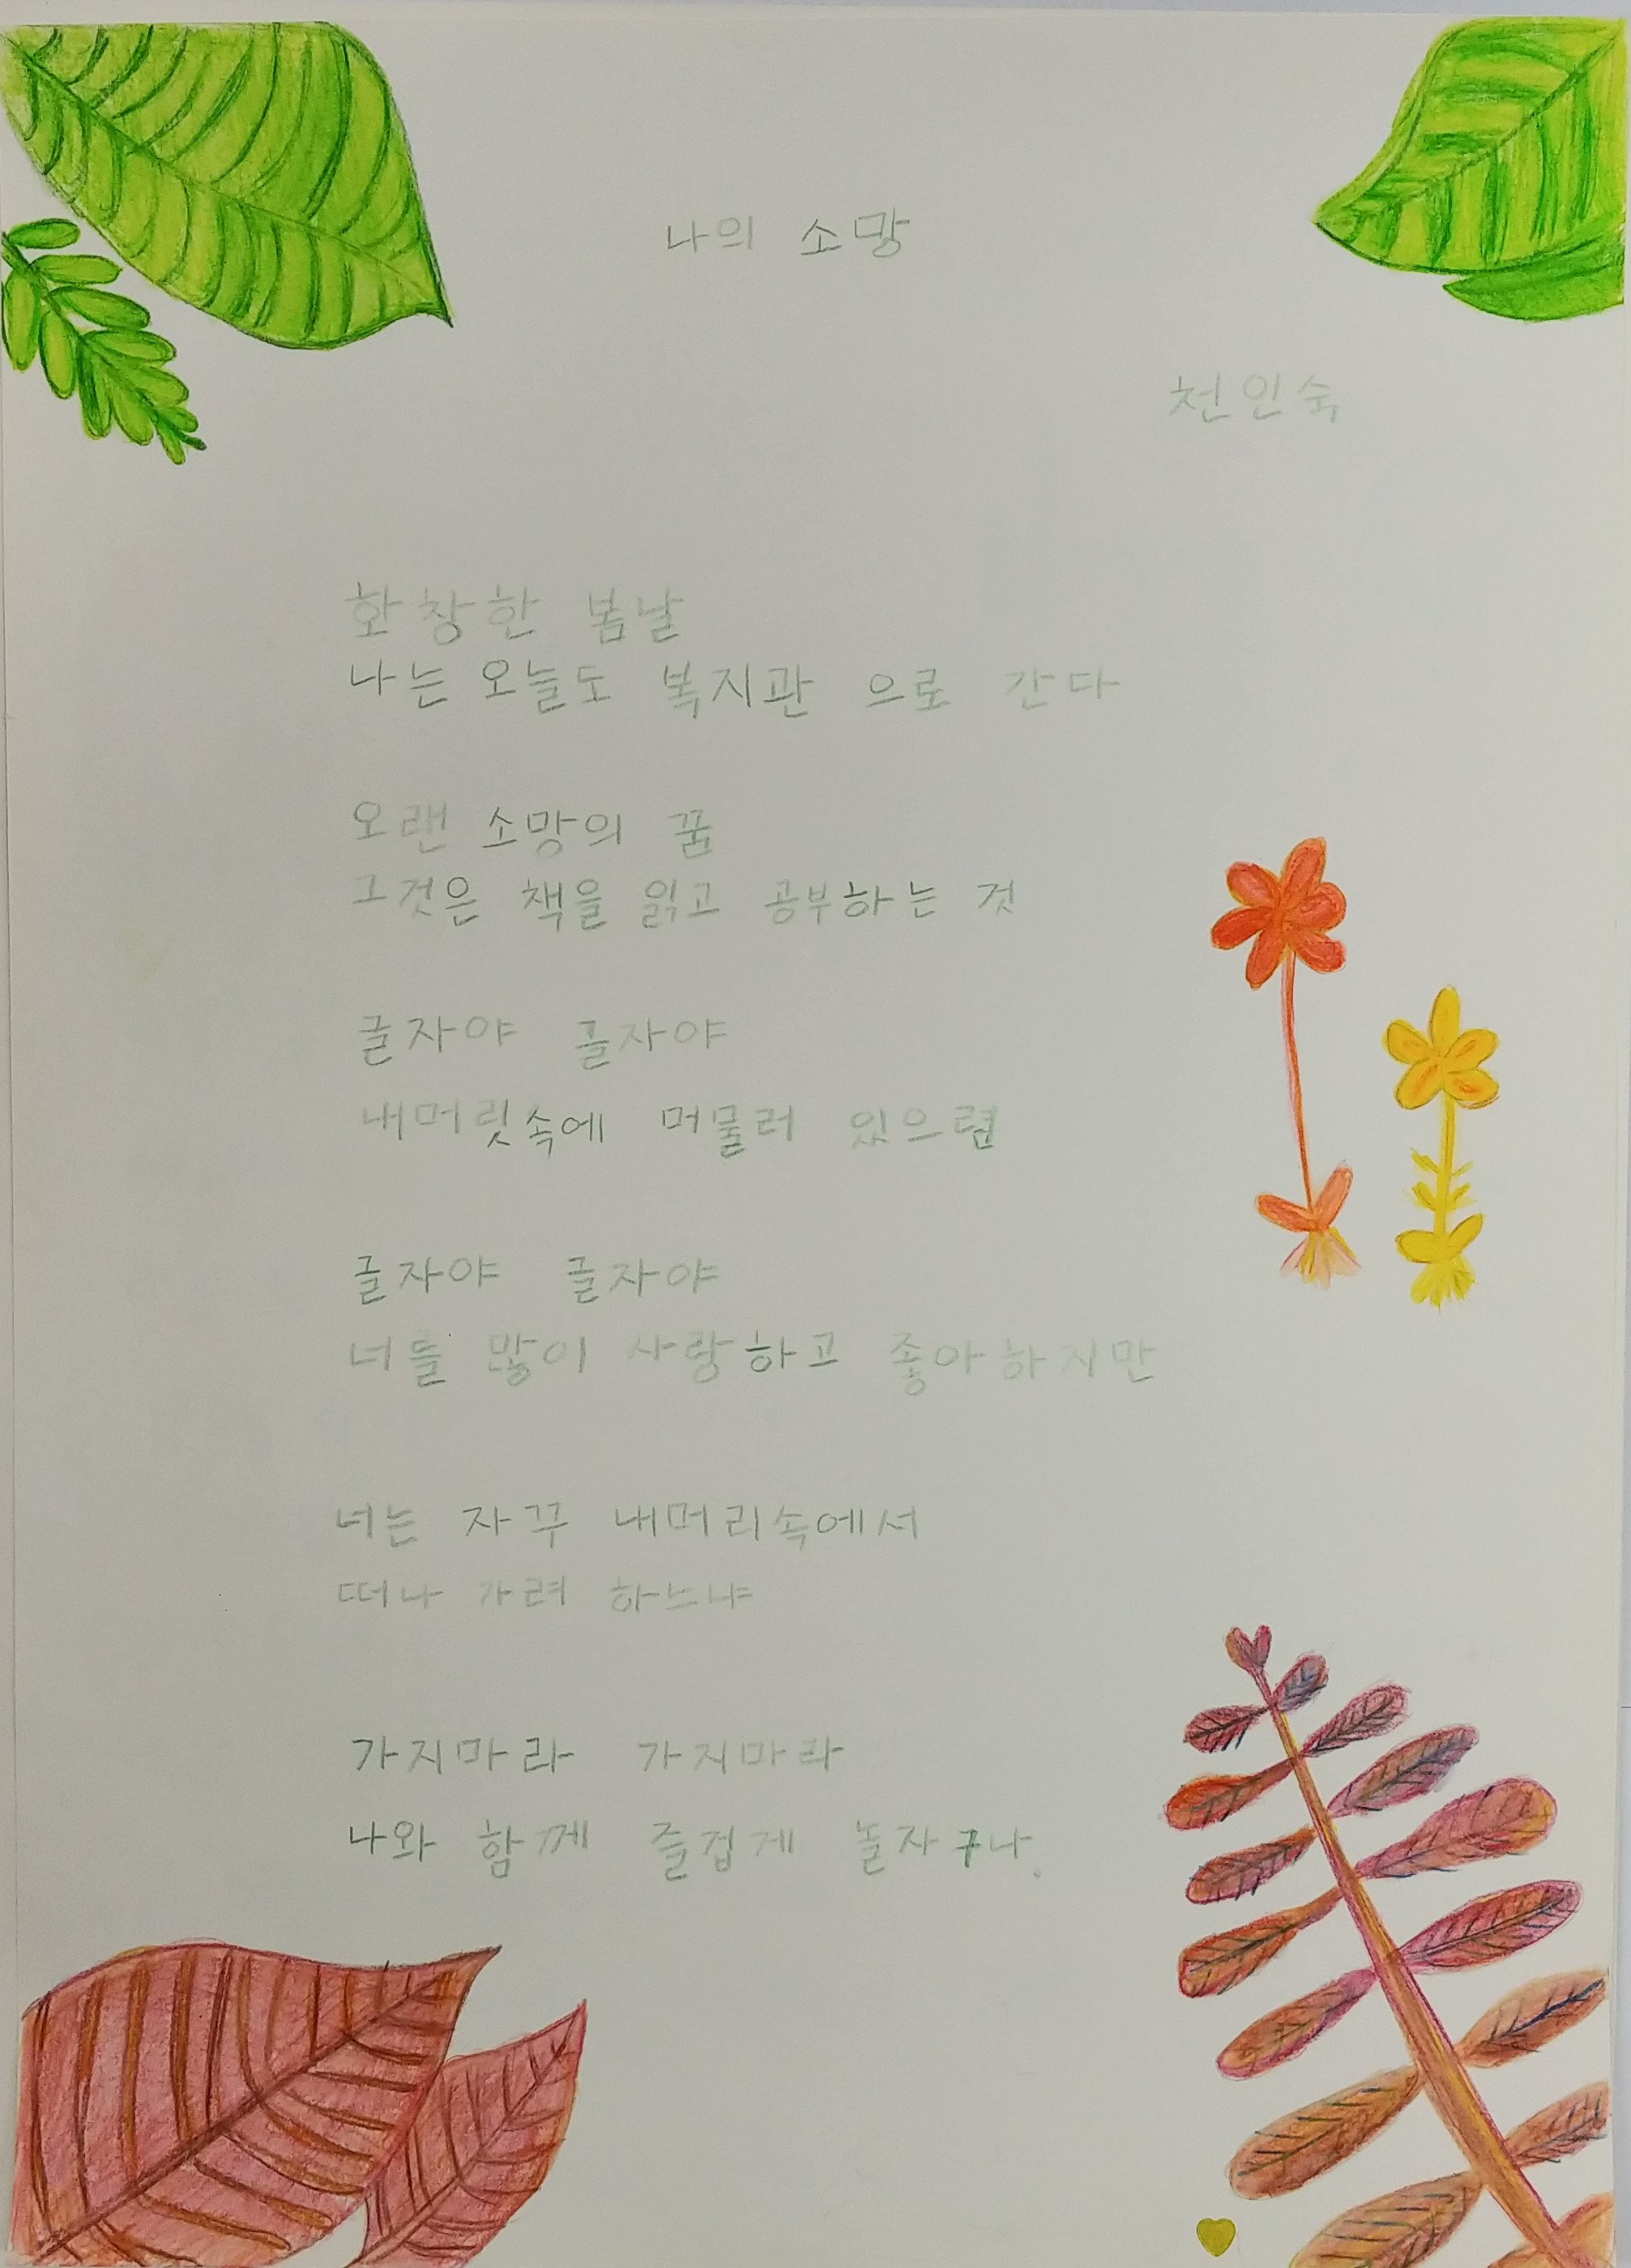 나의 소망
천인숙
화창한 봄날
나는 오늘도 복지관 으로 간다
오랜 소망의 꿈
그것은 책을 읽고 공부하는 것
글자야 글자야
내머릿속에 머물러 있으렴
글자야 글자야
너를 많이 사랑하고 좋아하지만
너는 자꾸 내머리속에서
떠나 가려 하느냐
가지마라 가지마라
나와 함께 즐겁게 놀자구나.